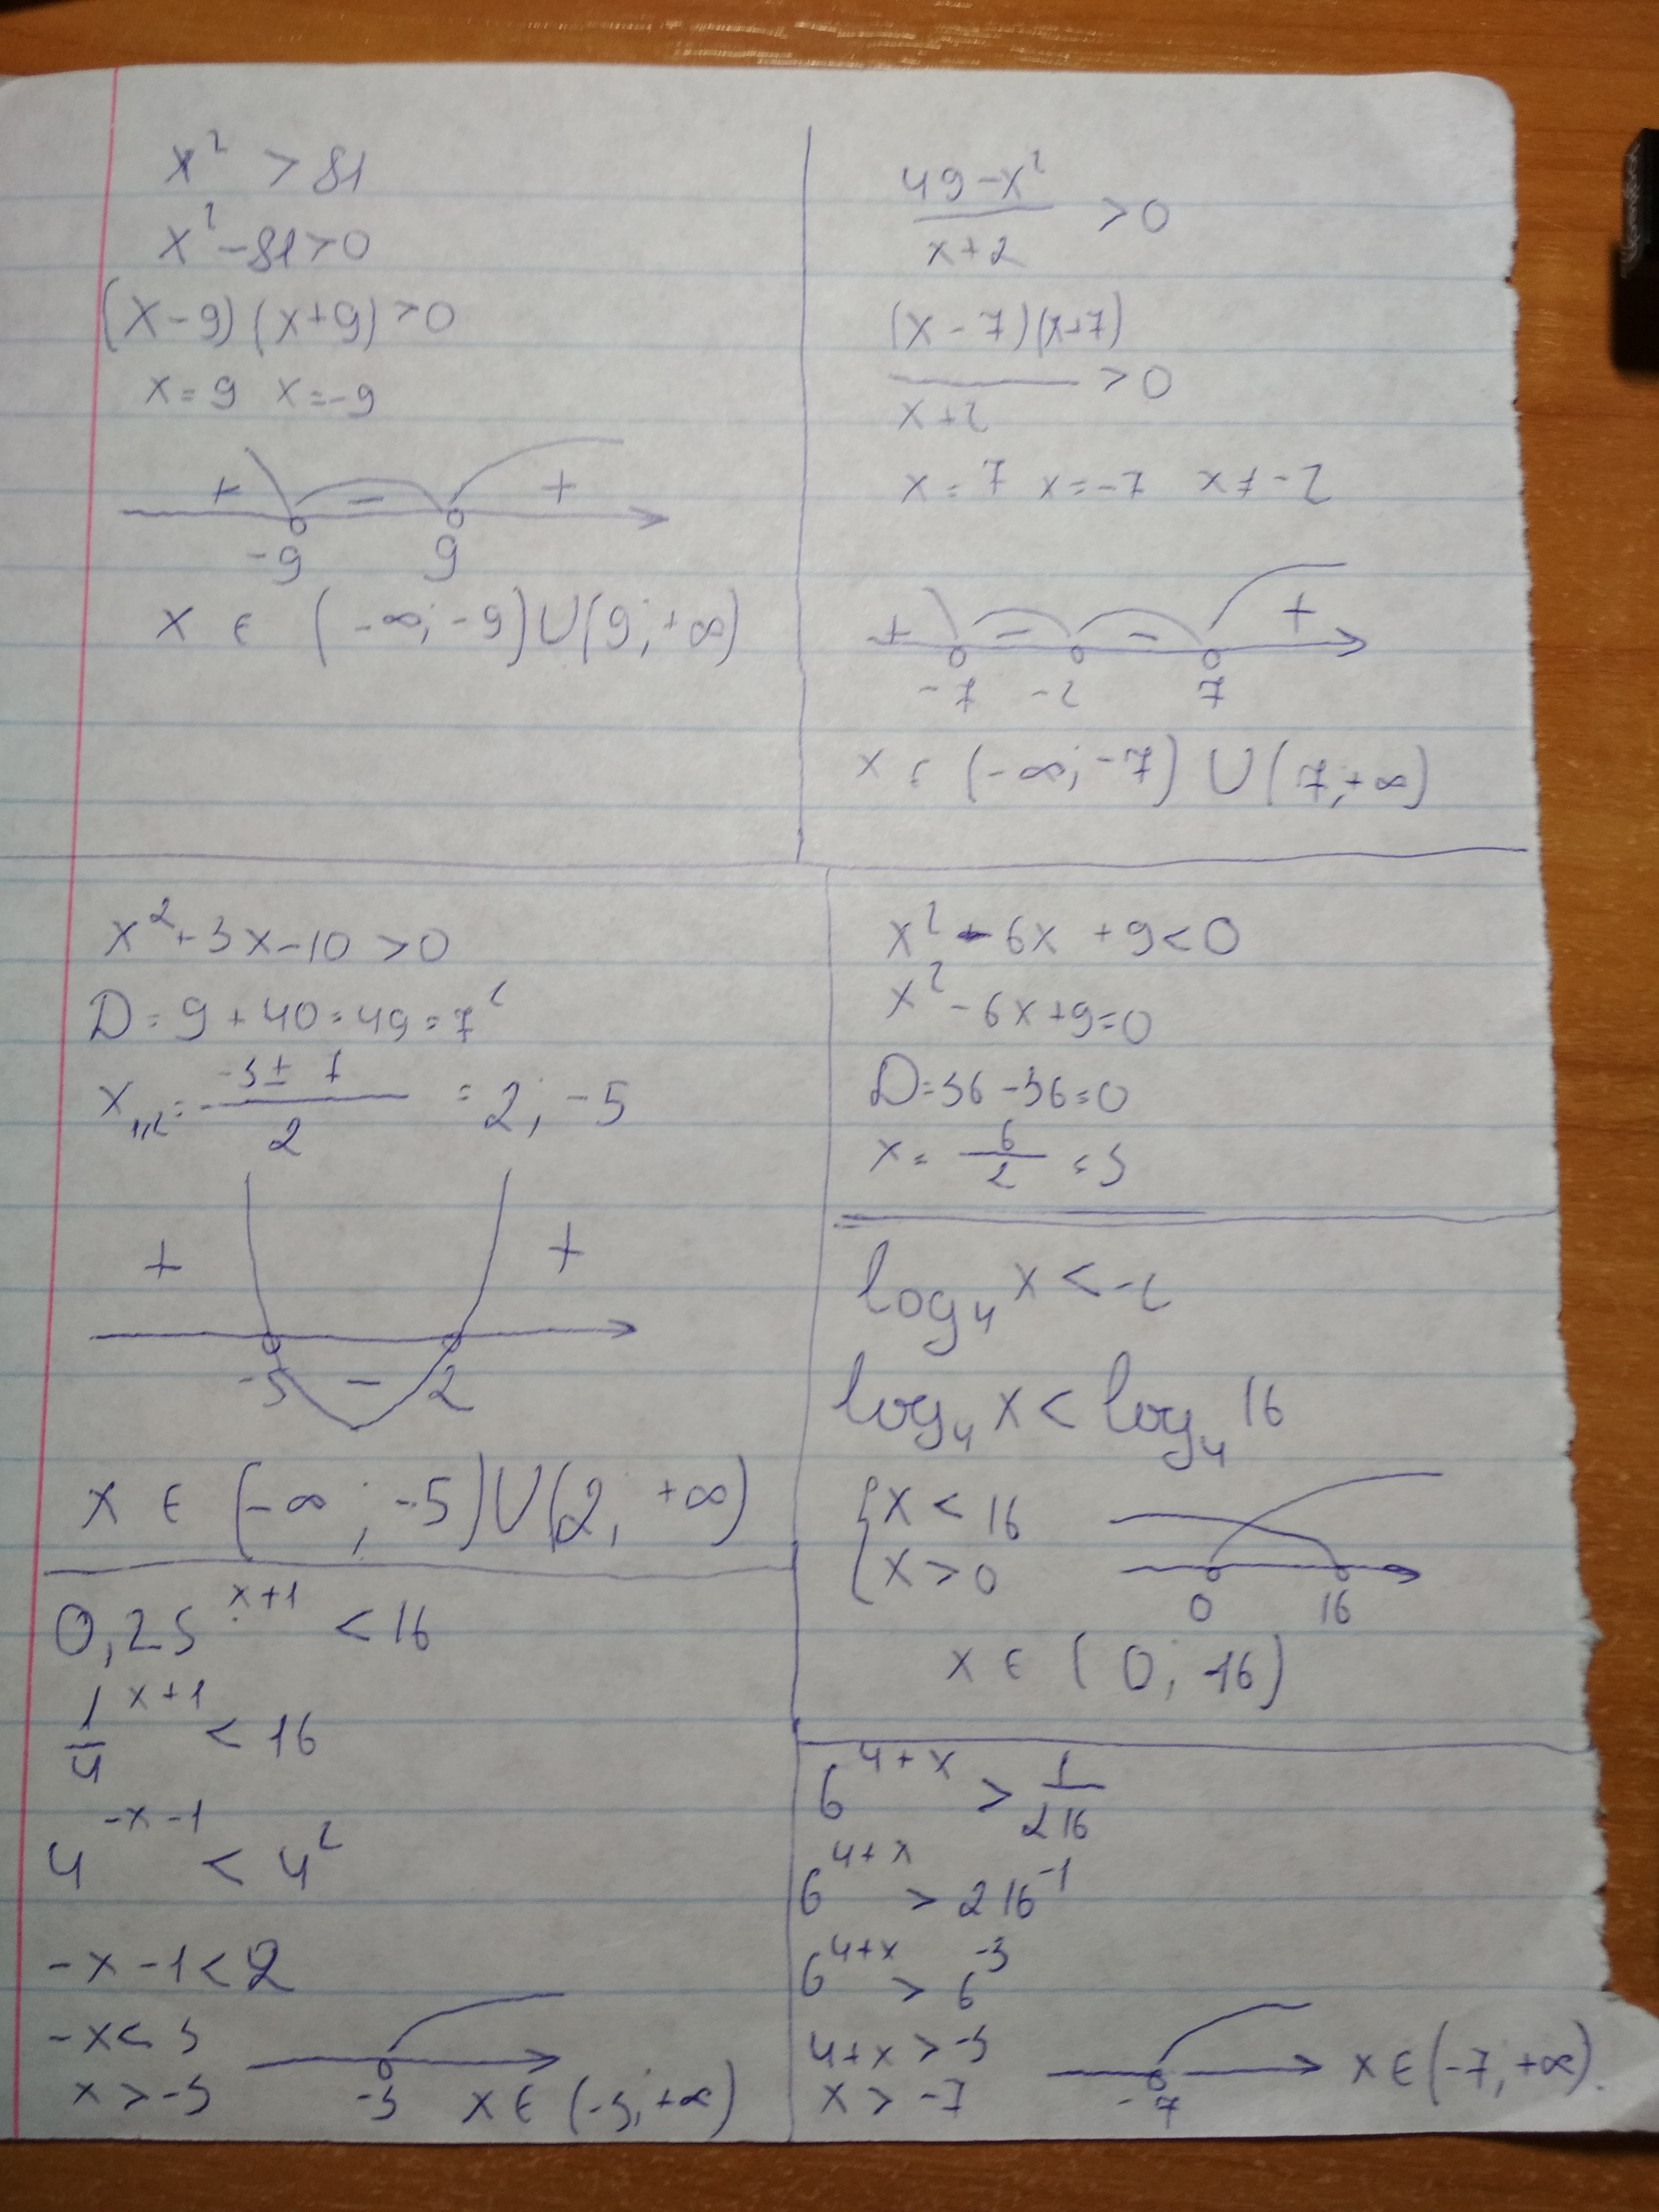 x² > 81
x² - 81 > 0
(x - 9)(x + 9) > 0
x = 9 x = -9
+ - +
-9 9
x ∈ (-∞; -9) ∪ (9; +∞)
49 - x²
x + 2
> 0
(x - 7)(x + 7)
x + 2
> 0
x = 7 x = -7 x ≠ -2
+ - - +
-7 -2 7
x ∈ (-∞; -7) ∪ (7; +∞)
x² + 3x - 10 > 0
D = 9 + 40 = 49 = 7²
x₁,₂ = (-3 ± 7)/2 = 2; -5
+ +
-5 - 2
x ∈ (-∞; -5) ∪ (2; +∞)
x² - 6x + 9 < 0
x² - 6x + 9 = 0
D = 36 - 36 = 0
x = 6/2 = 3
log₄ x < -2
log₄ x < log₄ 16
{ x < 16
x > 0
0 16
x ∈ (0; 16)
0,25^(x+1) < 16
1/4^(x+1) < 16
4^(-x-1) < 4²
-x - 1 < 2
-x < 3
x > -3
-3
x ∈ (-3; +∞)
6^(4+x) > 1/216
6^(4+x) > 216⁻¹
6^(4+x) > 6⁻³
4 + x > -3
x > -7
-7
x ∈ (-7; +∞).